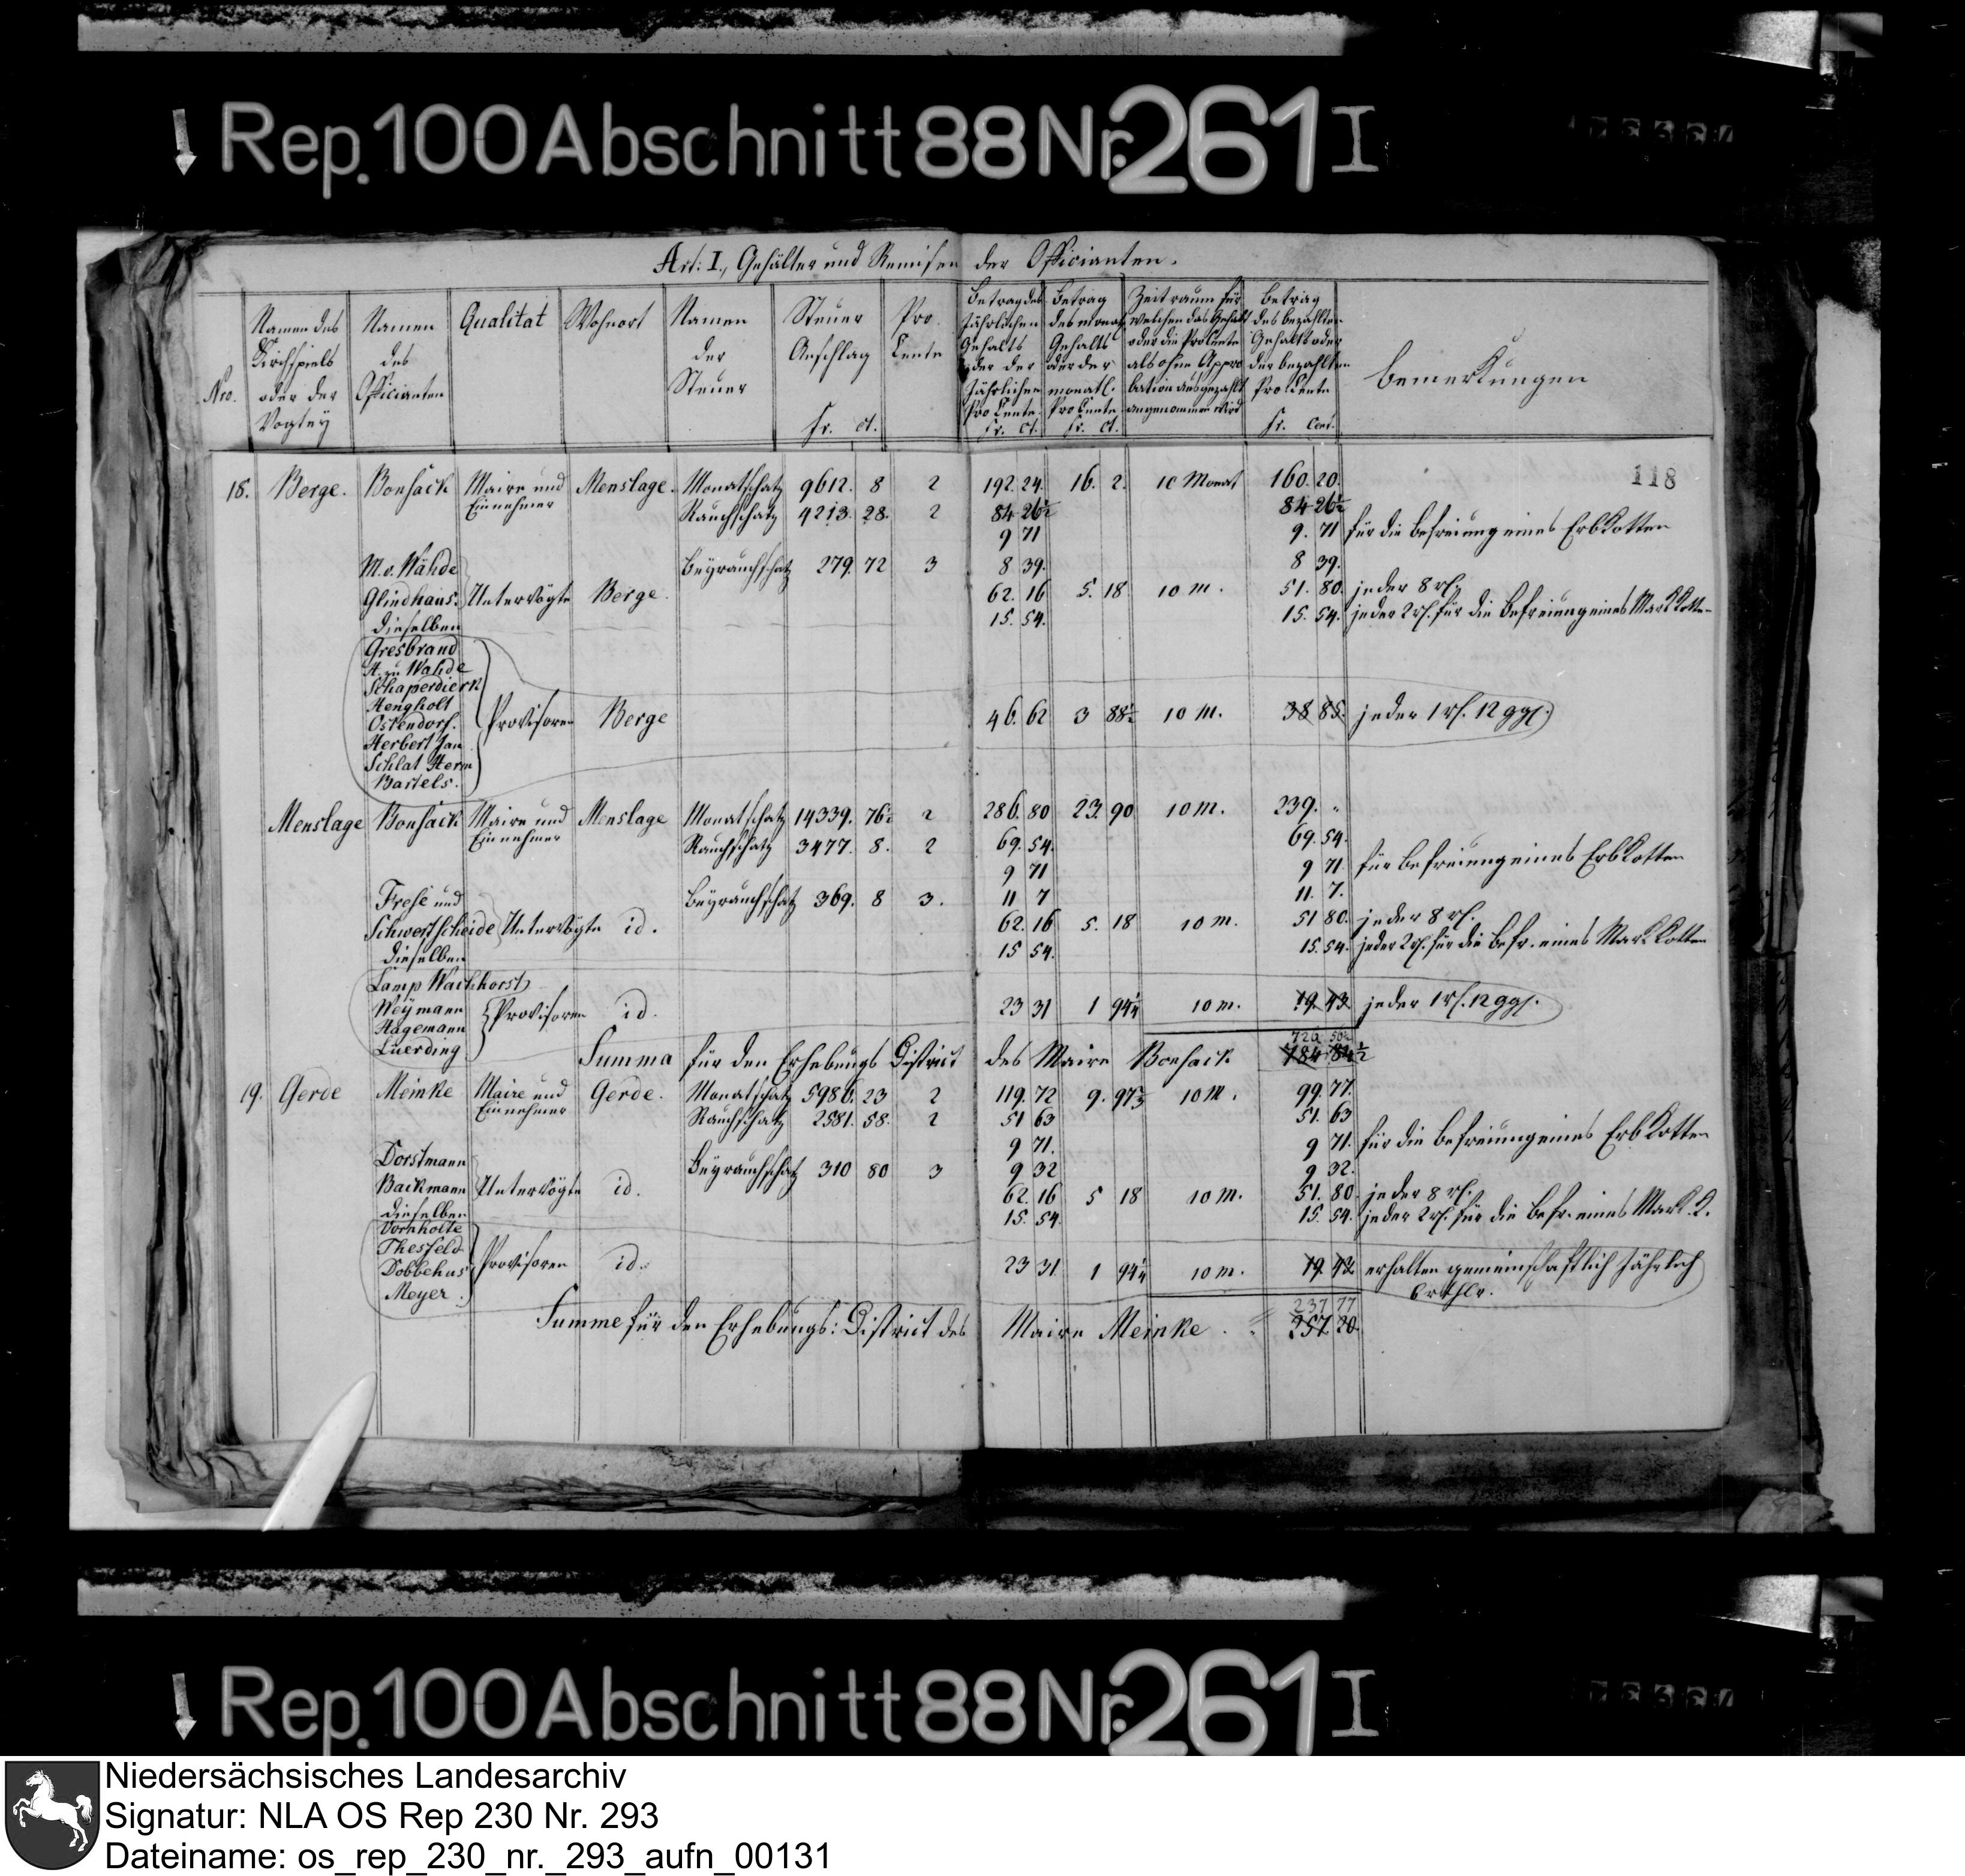 Rep. 100 Abschnitt 88 Nr. 261 I
Art: I., Gehälter und Remisen der Officianten.
Nro. | Namen des Kirchspiels oder der Vogtey | Namen des Officianten | Qualitat | Wohnort | Namen der Steuer | Steuer Anschlag fr. ct. | Pro Cente | Betrag des Jährlichen Gehalts oder der Jährlichen Pro Cente. fr. ct. | Betrag des monatl. Gehalts oder der monatl. Pro Cente fr. ct. | Zeitraum für welchen das Gehalt oder die Pro Cente als ohne Appro bation ausgezahlt angenommen wird | Betrag des bezahlten Gehalts oder der bezahlten Pro Cente fr. Cent. | Bemerkungen
118
18. Berge. Bonsack Maire und Einnehmer Menslage. Monatschatz 9612. 8 2 192. 24. 16. 2. 10 Monat 160. 20.
Rauchschatz 4213. 28. 2 84 26½ 84 26½
9 71 9. 71 für die Befreiung eines Erbkotten
Beyrauchschatz 279. 72 3 8 39. 8 39.
M. v. Wähde
Glindhaus. Untervögte Berge. 62. 16 5. 18 10 m. 51. 80. jeder 8 rl.
dieselben 15. 54. 15. 54. jeder 2 rl. für die Befreiung eines Markkotten
Gresbrand
A. zu Wahde
Schaperdierk
Hengholt
Ostendorf. Provisoren Berge 46. 62 3 88½ 10 m. 38 85. jeder 1 rl. 12 ggl.
Herbert Jan
Schlat Herm
Bartels.
Menslage Bonsack Maire und Einnehmer Menslage Monatschatz 14339. 76½ 2 286. 80 23. 90 10 m. 239. "
Rauchschatz 3477. 8. 2 69. 54. 69. 54.
9 71 9 71 für Befreiung eines Erbkotten
Beyrauchschatz 369. 8 3. 11 7 11. 7.
Frese und
Schwertscheide Untervögte id. 62. 16 5. 18 10 m. 51 80. jeder 8 rl.
dieselben 15 54. 15. 54. jeder 2 rl. für die Befr. eines Markkotten
Lamp Wachhorst
Weymann Provisoren id. 23 31 1 94¼ 10 m. 19. 43. jeder 1 rl. 12 ggl.
Hagemann
Lüerding
726 56½
Summa für den Erhebungs District des Maire Bonsack 784 84½
19. Gerde Meinke Maire und Einnehmer Gerde. Monatschatz 5986. 23 2 119. 72 9. 97⅔ 10 m. 99. 77.
Rauchschatz 2581. 58. 2 51 63 51. 63
9 71. 9 71. für die Befreiung eines Erbkotten
Beyrauchschatz 310 80 3 9 32 9 32.
Dorstmann
Backmann Untervögte id. 62. 16 5 18 10 m. 51. 80. jeder 8 rl.
dieselben 15. 54. 15. 54. jeder 2 rl. für die Befr. eines Mark K.
Vornholte
Thesfeld
Dobbehus Provisoren id. 23 31. 1 94¼ 10 m. 19. 43 erhalten gemeinschaftlich Jährlich
Meyer. 6 rthlr.
237 77
Summe für den Erhebungs: District des Maire Meinke. 257. 20.
Rep. 100 Abschnitt 88 Nr. 261 I
Niedersächsisches Landesarchiv
Signatur: NLA OS Rep 230 Nr. 293
Dateiname: os_rep_230_nr._293_aufn_00131